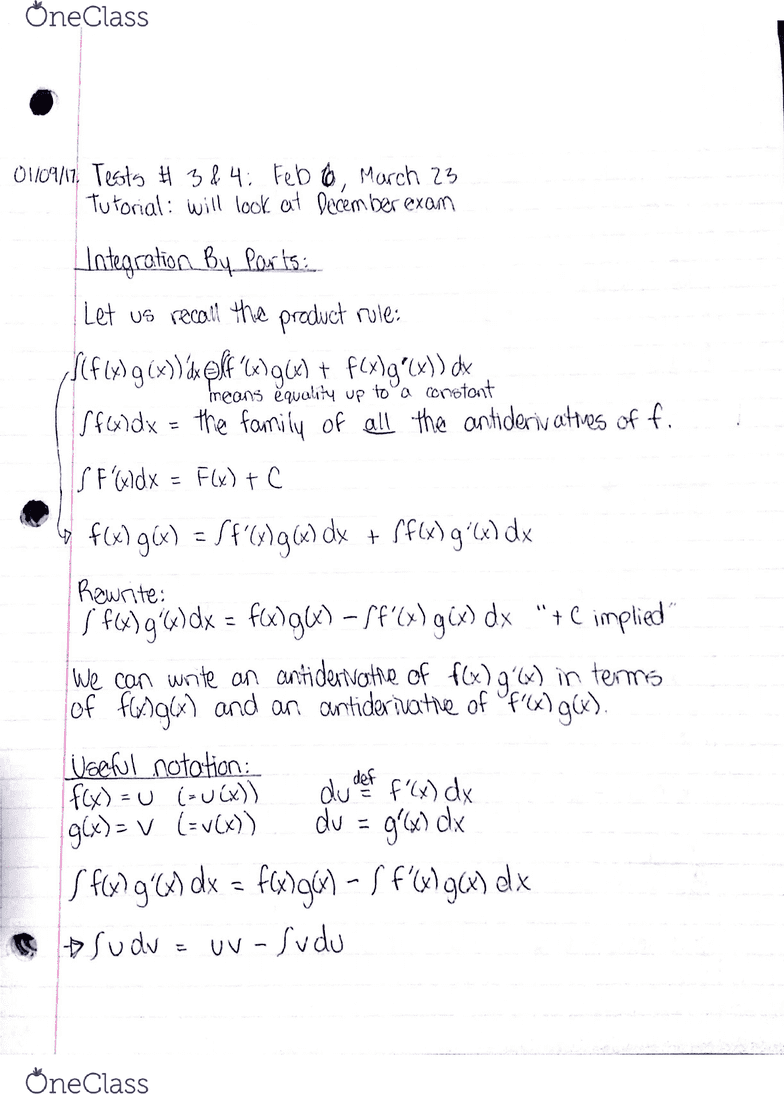 OneClass
01/09/17 Tests # 3 & 4: Feb 6, March 23
Tutorial: will look at December exam
Integration By Parts:
Let us recall the product rule:
∫(f(x)g(x))'dx = ∫(f'(x)g(x) + f(x)g'(x))dx
means equality up to a constant
∫f(x)dx = the family of all the antiderivatives of f.
∫F'(x)dx = F(x) + C
f(x)g(x) = ∫f'(x)g(x)dx + ∫f(x)g'(x)dx
Rewrite:
∫f(x)g'(x)dx = f(x)g(x) - ∫f'(x)g(x)dx "+ C implied"
We can write an antiderivative of f(x)g'(x) in terms
of f(x)g(x) and an antiderivative of f'(x)g(x).
Useful notation:
f(x) = u (=u(x)) du def= f'(x)dx
g(x) = v (=v(x)) dv = g'(x)dx
∫f(x)g'(x)dx = f(x)g(x) - ∫f'(x)g(x)dx
→ ∫udv = uv - ∫vdu
OneClass